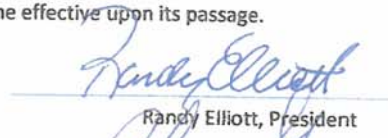 ne effective upon its passage.
Randy Elliott
Randy Elliott, President